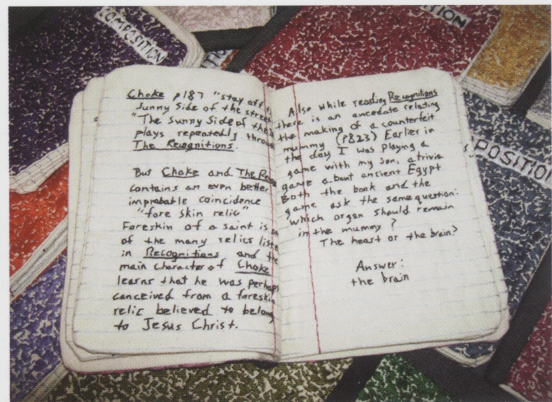 COMPOSITION
Choke p187 "stay off t
sunny side of the stree
"The Sunny Side of the
plays repeatedly throu
The Recognitions.
But Choke and The Re
contains an even bette
improbable coincidence
"fore skin relic"
Foreskin of a saint is o
of the many relics liste
in Recognitions and the
main character of Choke
learns that he was perhap
conceived from a foreskin
relic believed to belong
to Jesus Christ.
Also while reading Recognitions
there is an anecdote relating
the making of a counterfeit
mummy (p823) Earlier in
the day I was playing a
game with my son, a trivia
game about ancient Egypt
Both the book and the
game ask the same question:
which organ should remain
in the mummy?
The heart or the brain?
Answer:
the brain
ITION
POSITION